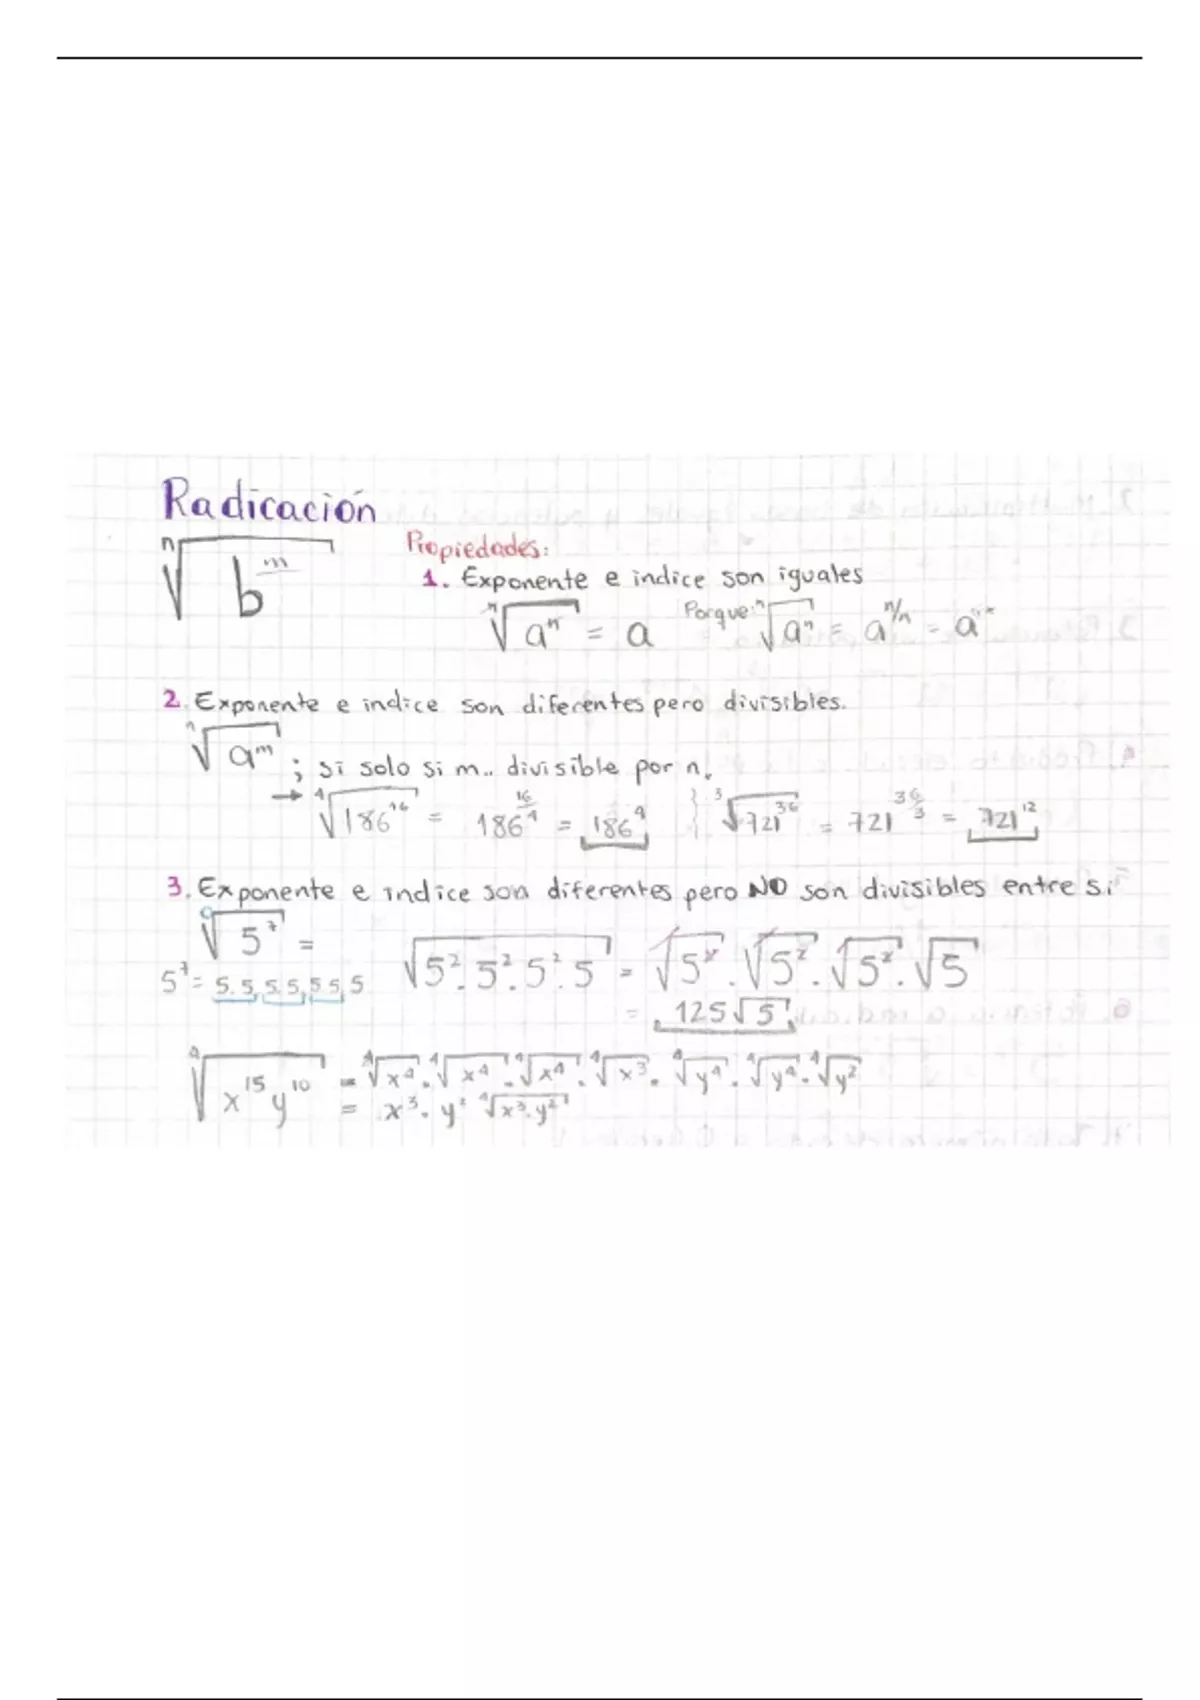 Radicación
ⁿ√b^m
Propiedades:
1. Exponente e indice son iguales
ⁿ√aⁿ = a Porque: ⁿ√aⁿ = a^n/n = a
2. Exponente e indice son diferentes pero divisibles.
ⁿ√a^m ; si solo si m.. divisible por n.
→ ⁴√186^16 = 186^16/4 = 186^4 } ³√721^36 = 721^36/3 = 721^12
3. Exponente e indice son diferentes pero NO son divisibles entre si
√5^7 = √5².5².5².5 = √5².√5².√5².√5
5^7 = 5.5,5.5,5 5,5
= 125√5
⁴√x^15 y^10 = ⁴√x⁴.⁴√x⁴.⁴√x⁴.⁴√x³.⁴√y⁴.⁴√y⁴.⁴√y²
= x³.y² ⁴√x³.y²